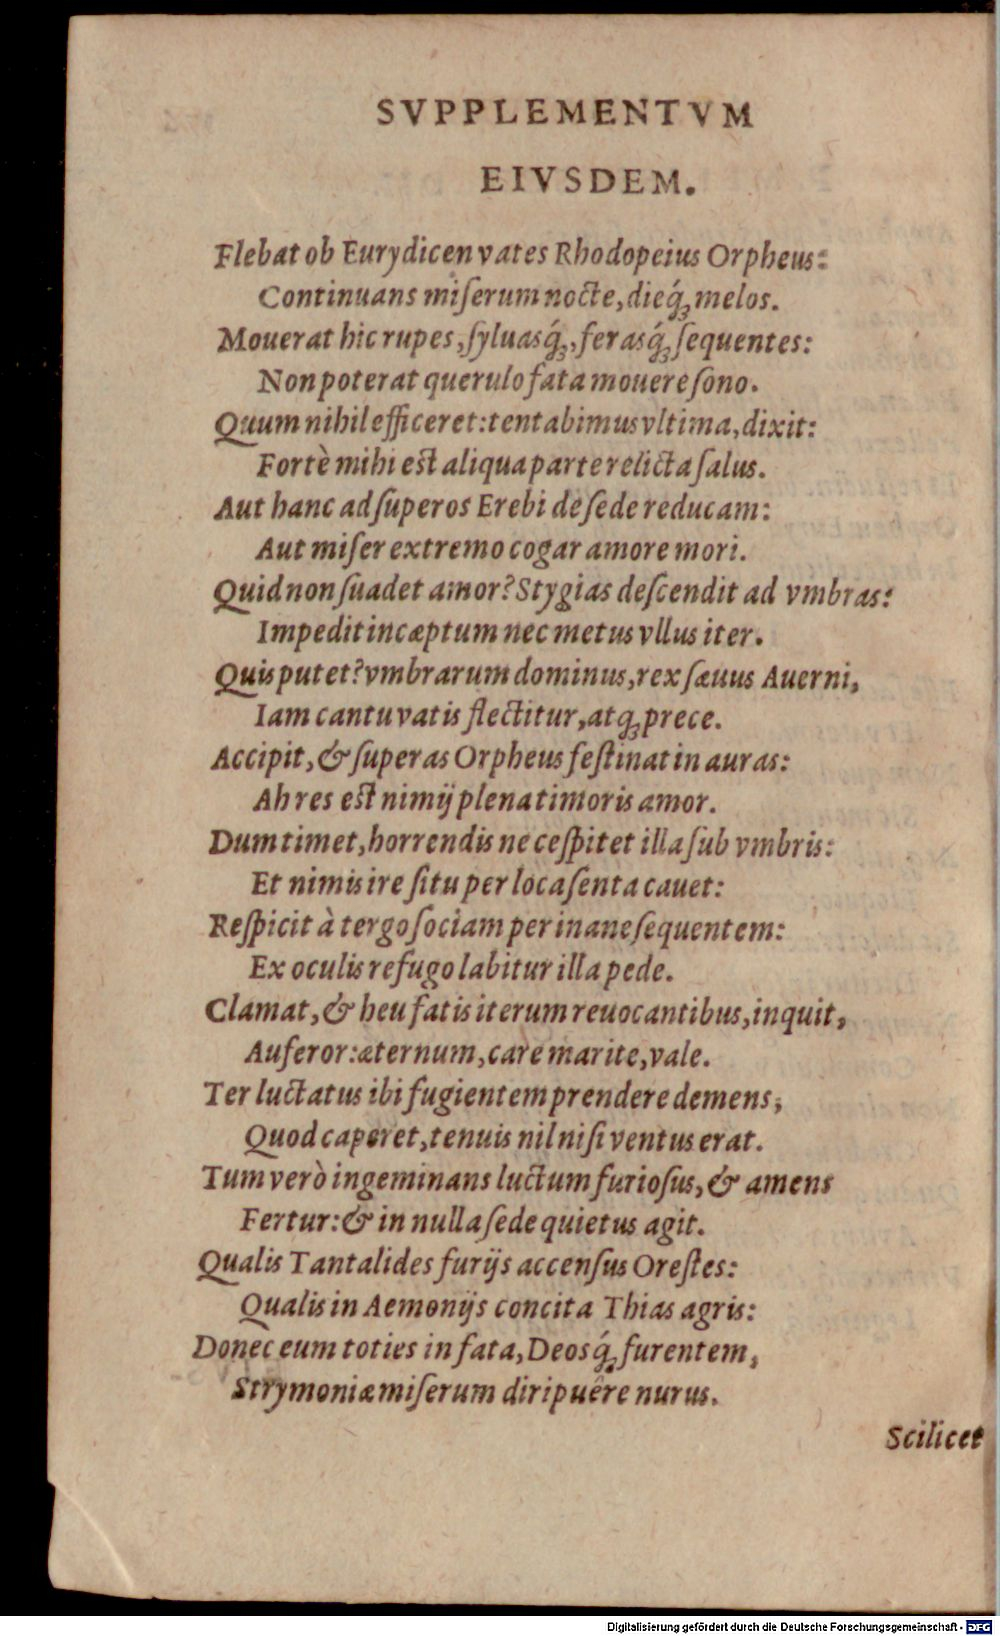 SVPPLEMENTVM
EIVSDEM.
Flebat ob Eurydicen vates Rhodopeius Orpheus:
Continuans miſerum nocte, dieq́ꝫ melos.
Mouerat hic rupes, ſyluasq́ꝫ, ferasq́ꝫ ſequentes:
Non poterat querulo fata mouere ſono.
Quum nihil efficeret: tentabimus vltima, dixit:
Fortè mihi est aliqua parte relicta ſalus.
Aut hanc ad ſuperos Erebi de ſede reducam:
Aut miſer extremo cogar amore mori.
Quid non ſuadet amor? Stygias deſcendit ad vmbras:
Impedit incæptum nec metus vllus iter.
Quis putet? vmbrarum dominus, rex ſæuus Auerni,
Iam cantu vatis flectitur, atqꝫ prece.
Accipit, & ſuperas Orpheus feſtinat in auras:
Ah res est nimij plena timoris amor.
Dum timet, horrendis ne ceſpitet illa ſub vmbris:
Et nimis ire ſitu per loca ſenta cauet:
Reſpicit à tergo ſociam per inane ſequentem:
Ex oculis refugo labitur illa pede.
Clamat, & heu fatis iterum reuocantibus, inquit,
Auferor: æternum, care marite, vale.
Ter luctatus ibi fugientem prendere demens,
Quod caperet, tenuis nil niſi ventus erat.
Tum verò ingeminans luctum furioſus, & amens
Fertur: & in nulla ſede quietus agit.
Qualis Tantalides furijs accenſus Oreſtes:
Qualis in Aemonijs concita Thias agris:
Donec eum toties in fata, Deosq́ꝫ furentem,
Strymoniæ miſerum diripuêre nurus.
Scilicet
Digitalisierung gefördert durch die Deutsche Forschungsgemeinschaft - DFG